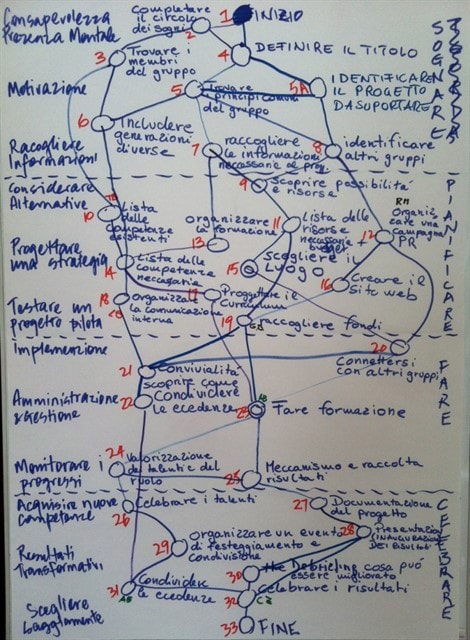 Consapevolezza
Presenza Mentale
Completare
il circolo
dei Sogni
2
1
INIZIO
3
Trovare i
membri
del gruppo
4
DEFINIRE IL TITOLO
SOGNARE
Motivazione
5
Trovare
principi comuni
del gruppo
5A
IDENTIFICARE
IL PROGETTO
DA SUPPORTARE
6
Includere
generazioni
diverse
Racogliere
Informazioni
7
raccogliere
le informazioni
necessarie al prog
8
identificare
altri gruppi
considerare
Alternative
9
scoprire possibilità
e risorse
PIANIFICARE
10
Lista
delle
competenze
esistenti
organizzare
la formazione
13
11
Lista delle
risorse
necessarie +
budget
12
Organiz
zare una
campagna
PR
Progettare
una strategia
14
Lista delle
competenze
necessarie
15
scegliere il
Luogo
16
Creare il
Sito web
Testare un
progetto pilota
18
organizzare
la comunicazione
interna
17
Progettare il
Curriculum
19
raccogliere fondi
20
Connettersi
con altri gruppi
Implemenzione
FARE
21
Convivialità
scoprire come
Condividere
le ecedenze
22
Amministrazione
e Gestione
23
Fare formazione
24
Valorizzazione
dei talenti e del
ruolo
Monitorare i
progressi
25
Meccanismo e raccolta
risultati
Acquisire nuove
competenze
26
Celebrare i talenti
27
Documentazione
del progetto
CELEBRARE
28
Presentazione
(INAUGURAZIONE
DEI RISULTATI
Resultati
Transformativi
29
Organizzare un evento
di festeggiamento e
Condivisione
30
the Debriefing cosa può
essere migliorato
31
Condividere
le ecedenze
32
Celebrare i risultati
Scegliere
Saggiamente
33
FINE